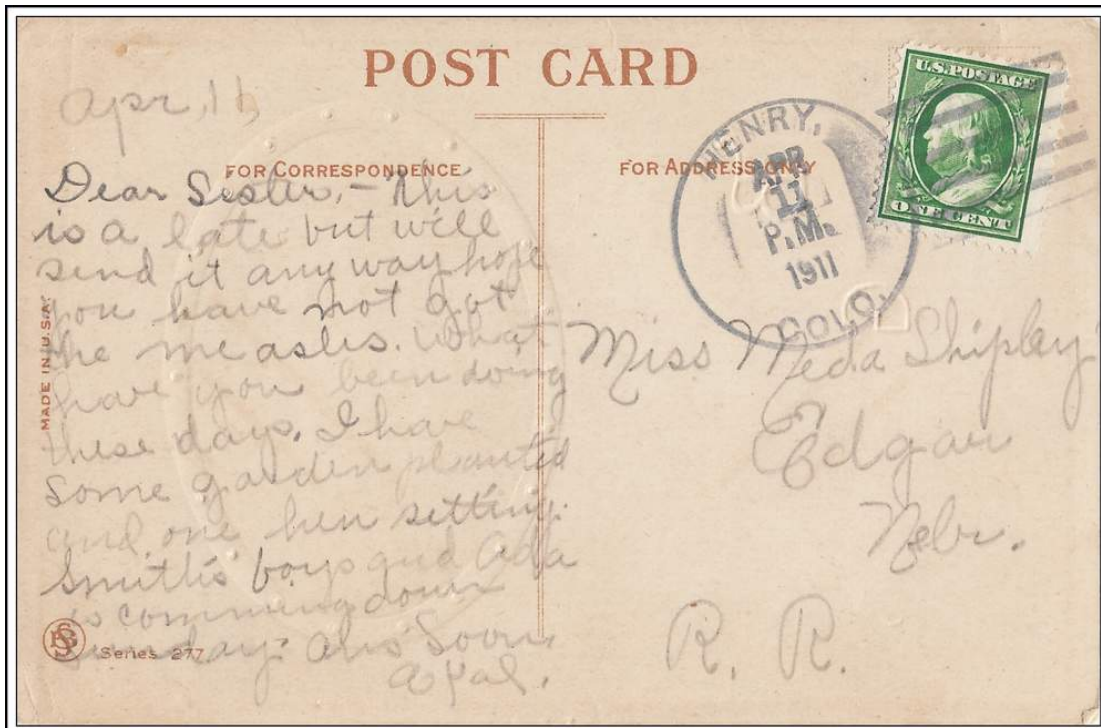 POST CARD
apr, 11,
FOR CORRESPONDENCE
Dear Sister, - This
is a late but will
send it any way hope
you have not got
the measles. What
have you been doing
these days. I have
some garden planted
and one hen setting.
Smith's boys and Ada
is comming down
Sunday. Ans Soon
a Pal.
MADE IN U.S.A.
Series 277
FOR ADDRESS ONLY
HENRY,
APR
11
P.M.
1911
COLO.
U.S. POSTAGE
ONE CENT
Miss Meda Shipley
Edgar
Nebr.
R. R.